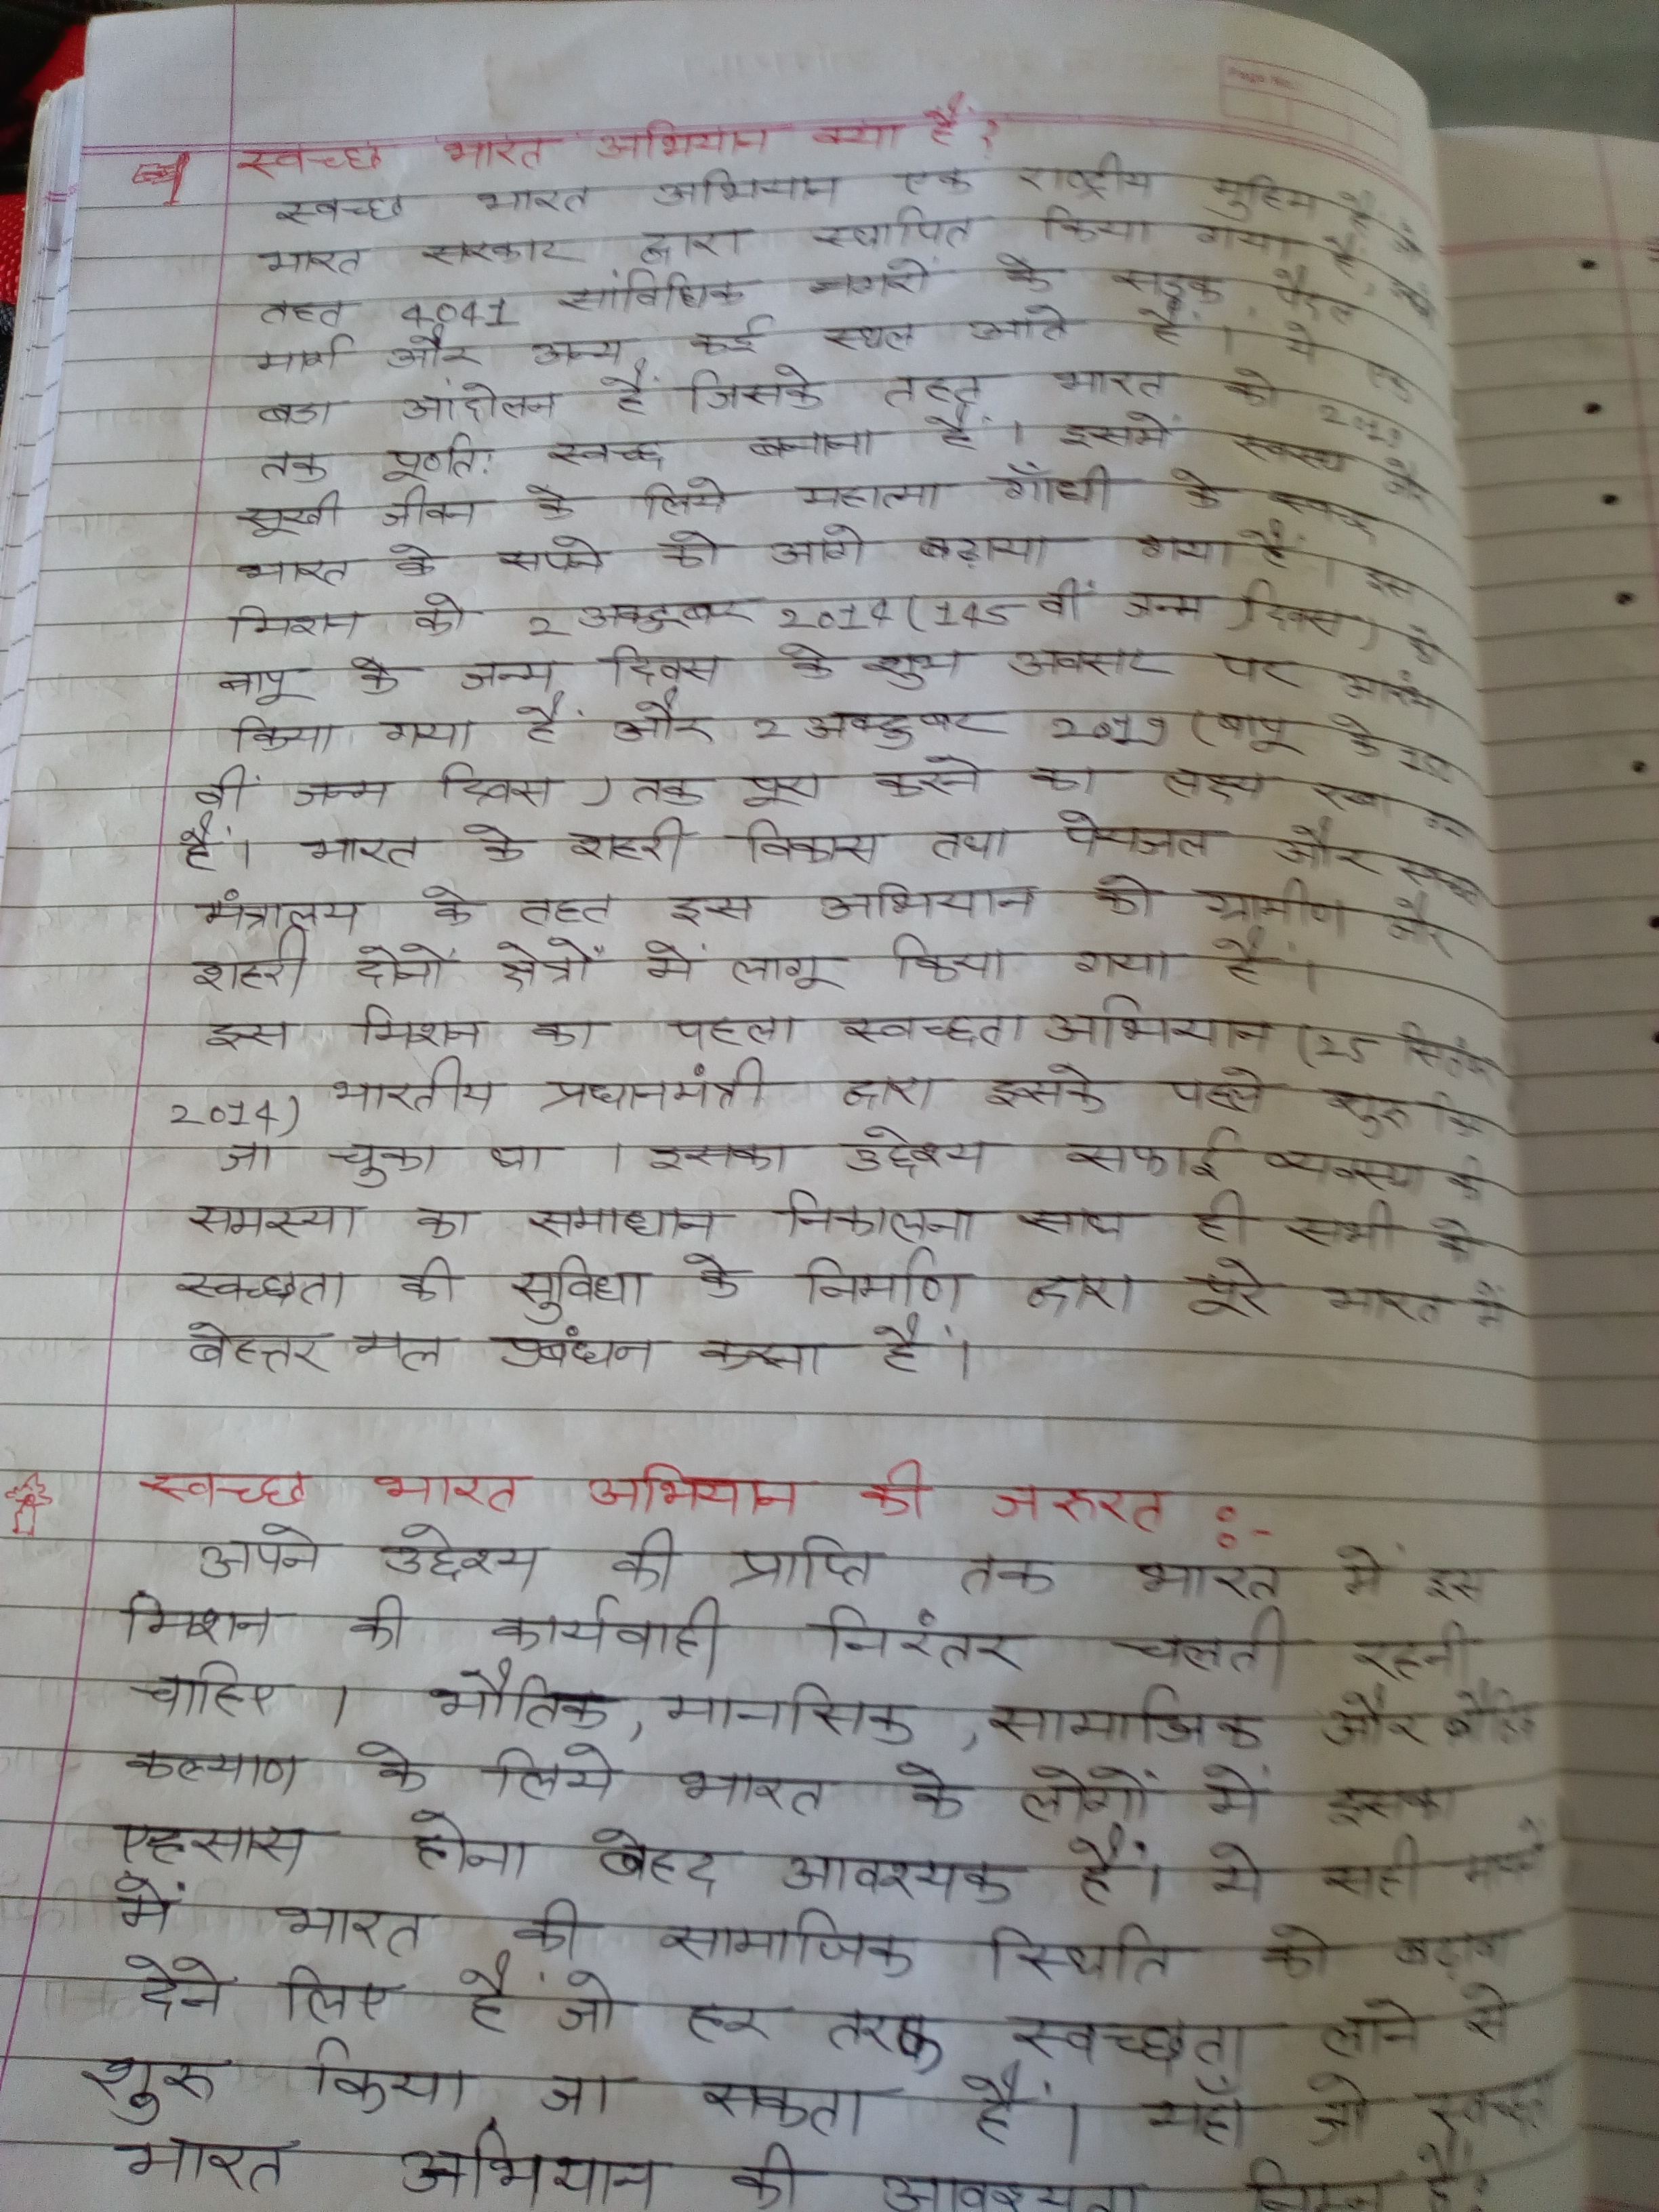 स्वच्छ भारत अभियान क्या हैं?
स्वच्छ भारत अभियान एक राष्ट्रीय मुहिम
भारत सरकार द्वारा स्थापित किया गया हैं,
तहत 4041 सांविधिक नगरों के सड़क, पैदल
मार्ग और अन्य कई स्थल आते हैं। ये एक
बडा आंदोलन हैं जिसके तहत भारत को 2019
तक पूर्णतः स्वच्छ बनाना हैं। इसमें स्वस्थ और
सूखी जीवन के लिये महात्मा गाँधी के स्वच्छ
भारत के सपने को आगे बढ़ाया गया हैं। इस
मिशन को 2 अक्टुबर 2014 (145 वीं जन्म दिवस) को
बापू के जन्म दिवस के शुभ अवसर पर आरंभ
किया गया हैं और 2 अक्टुबर 2019 (बापू के
वीं जन्म दिवस) तक पूरा करने का लक्ष्य रखा
हैं। भारत के शहरी विकास तथा पेयजल और
मंत्रालय के तहत इस अभियान को ग्रामीण और
शहरी दोनों क्षेत्रों में लागू किया गया हैं।
इस मिशन का पहला स्वच्छता अभियान (25
2014) भारतीय प्रधानमंत्री द्वारा इसके पहले शुरु
जा चुका था। इसका उद्देश्य सफाई व्यवस्था की
समस्या का समाधान निकालना साथ ही सभी को
स्वच्छता की सुविधा के निर्माण द्वारा पूरे भारत में
बेहत्तर मल प्रबंधन करना हैं।
Page No.
स्वच्छ भारत अभियान की जरुरत :-
अपने उद्देश्य की प्राप्ति तक भारत में इस
मिशन की कार्यवाही निरंतर चलती रहनी
चाहिए। भौतिक, मानसिक, सामाजिक और
कल्याण के लिये भारत के लोगों में इसका
एहसास होना बेहद आवश्यक हैं। ये सही
में भारत की सामाजिक स्थिति को बढ़ावा
देने लिए हैं जो हर तरफ स्वच्छता लाने से
शुरु किया जा सकता हैं। यहाँ जो स्वच्छ
भारत अभियान की आवश्यता